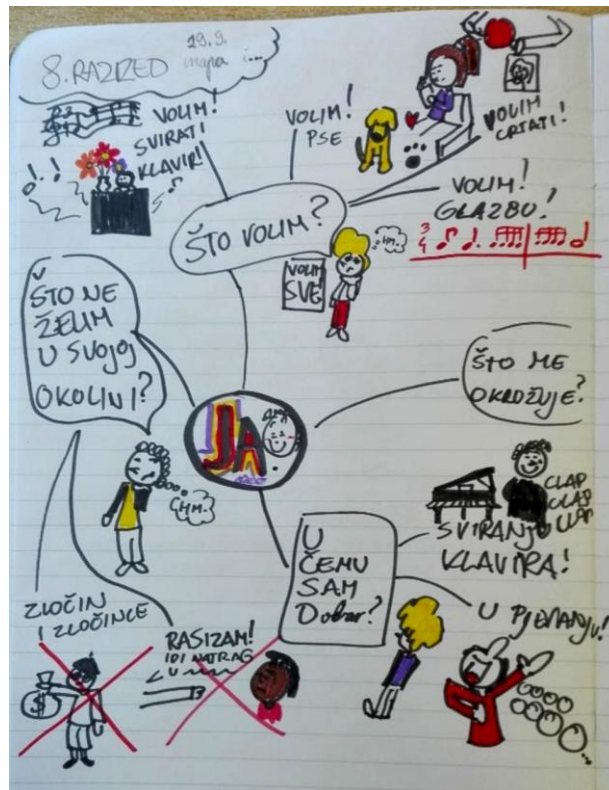 8. RAZRED
29.9.
mapa
VOLIM!
SVIRATI
KLAVIR!
VOLIM!
PSE
VOLIM
CRTATI!
VOLIM!
GLAZBU!
3
4
ŠTO VOLIM?
HM.
VOLIM
SVE
ŠTO NE
ŽELIM
U SVOJOJ
OKOLINI?
ŠTO ME
OKRUŽUJE?
JA
HM.
CLAP
CLAP
CLAP
SVIRANJU
KLAVIRA!
U
ČEMU
SAM
Dobar?
U PJEVANJU!
ZLOČIN
I ZLOČINCE
$
RASIZAM!
IDI NATRAG
U